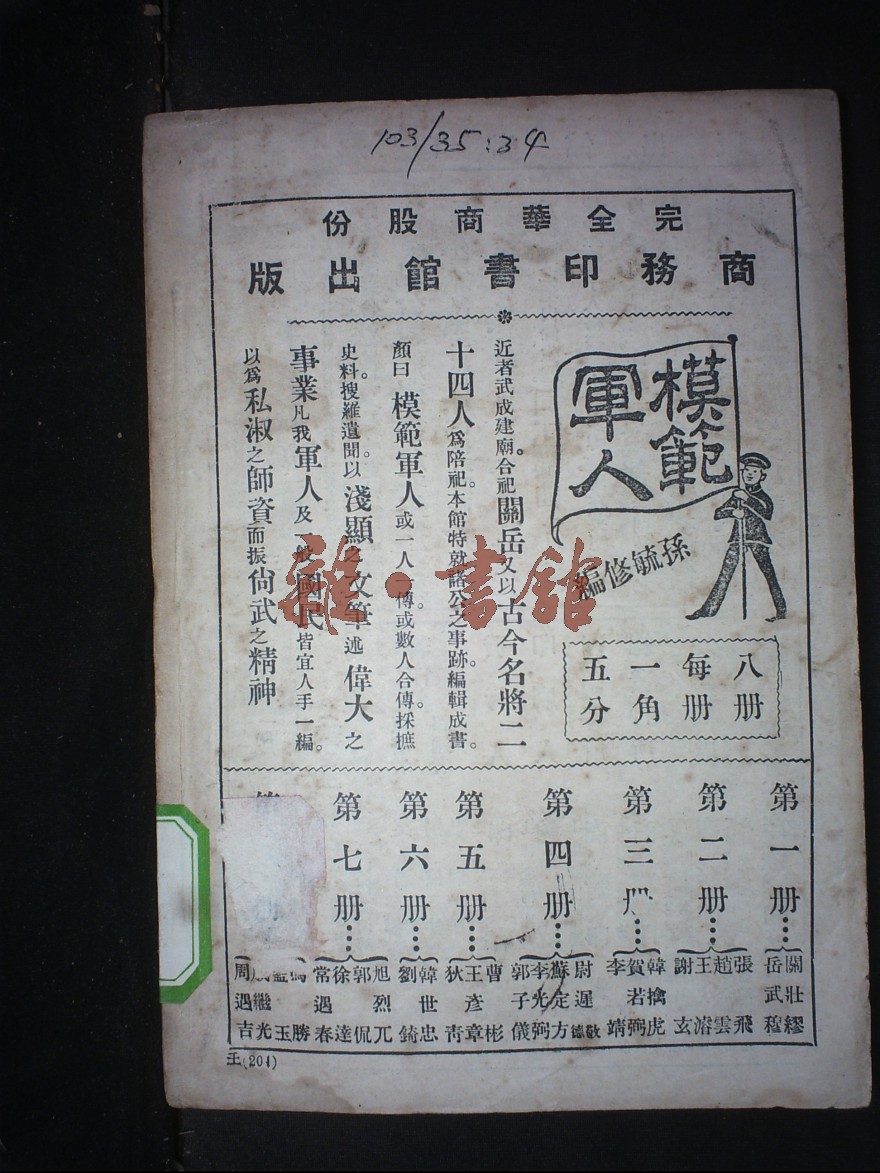 103/35:34
完全華商股份
商務印書館出版
模範
軍人
孫毓修編
八册
每册
一角
五分
近者武成建廟。合祀關岳又以古今名將二
十四人爲陪祀。本館特就諸公之事跡。編輯成書。
顏曰模範軍人或一人一傳。或數人合傳。採摭
史料。搜羅遺聞。以淺顯之文筆述偉大之
事業凡我軍人及一般國民皆宜人手一編。
以爲私淑之師資而振尙武之精神
雜·書館
第一册……
關壯繆
岳武穆
第二册……
張飛
趙雲
王濬
謝玄
第三册……
韓擒虎
賀若弼
李靖
第四册……
尉遲敬德
蘇定方
李光弼
郭子儀
第五册……
曹彬
王彥章
狄靑
第六册……
韓世忠
劉錡
第七册……
旭烈兀
郭侃
徐達
常遇春
馮勝
藍玉
戚繼光
周遇吉
王(204)